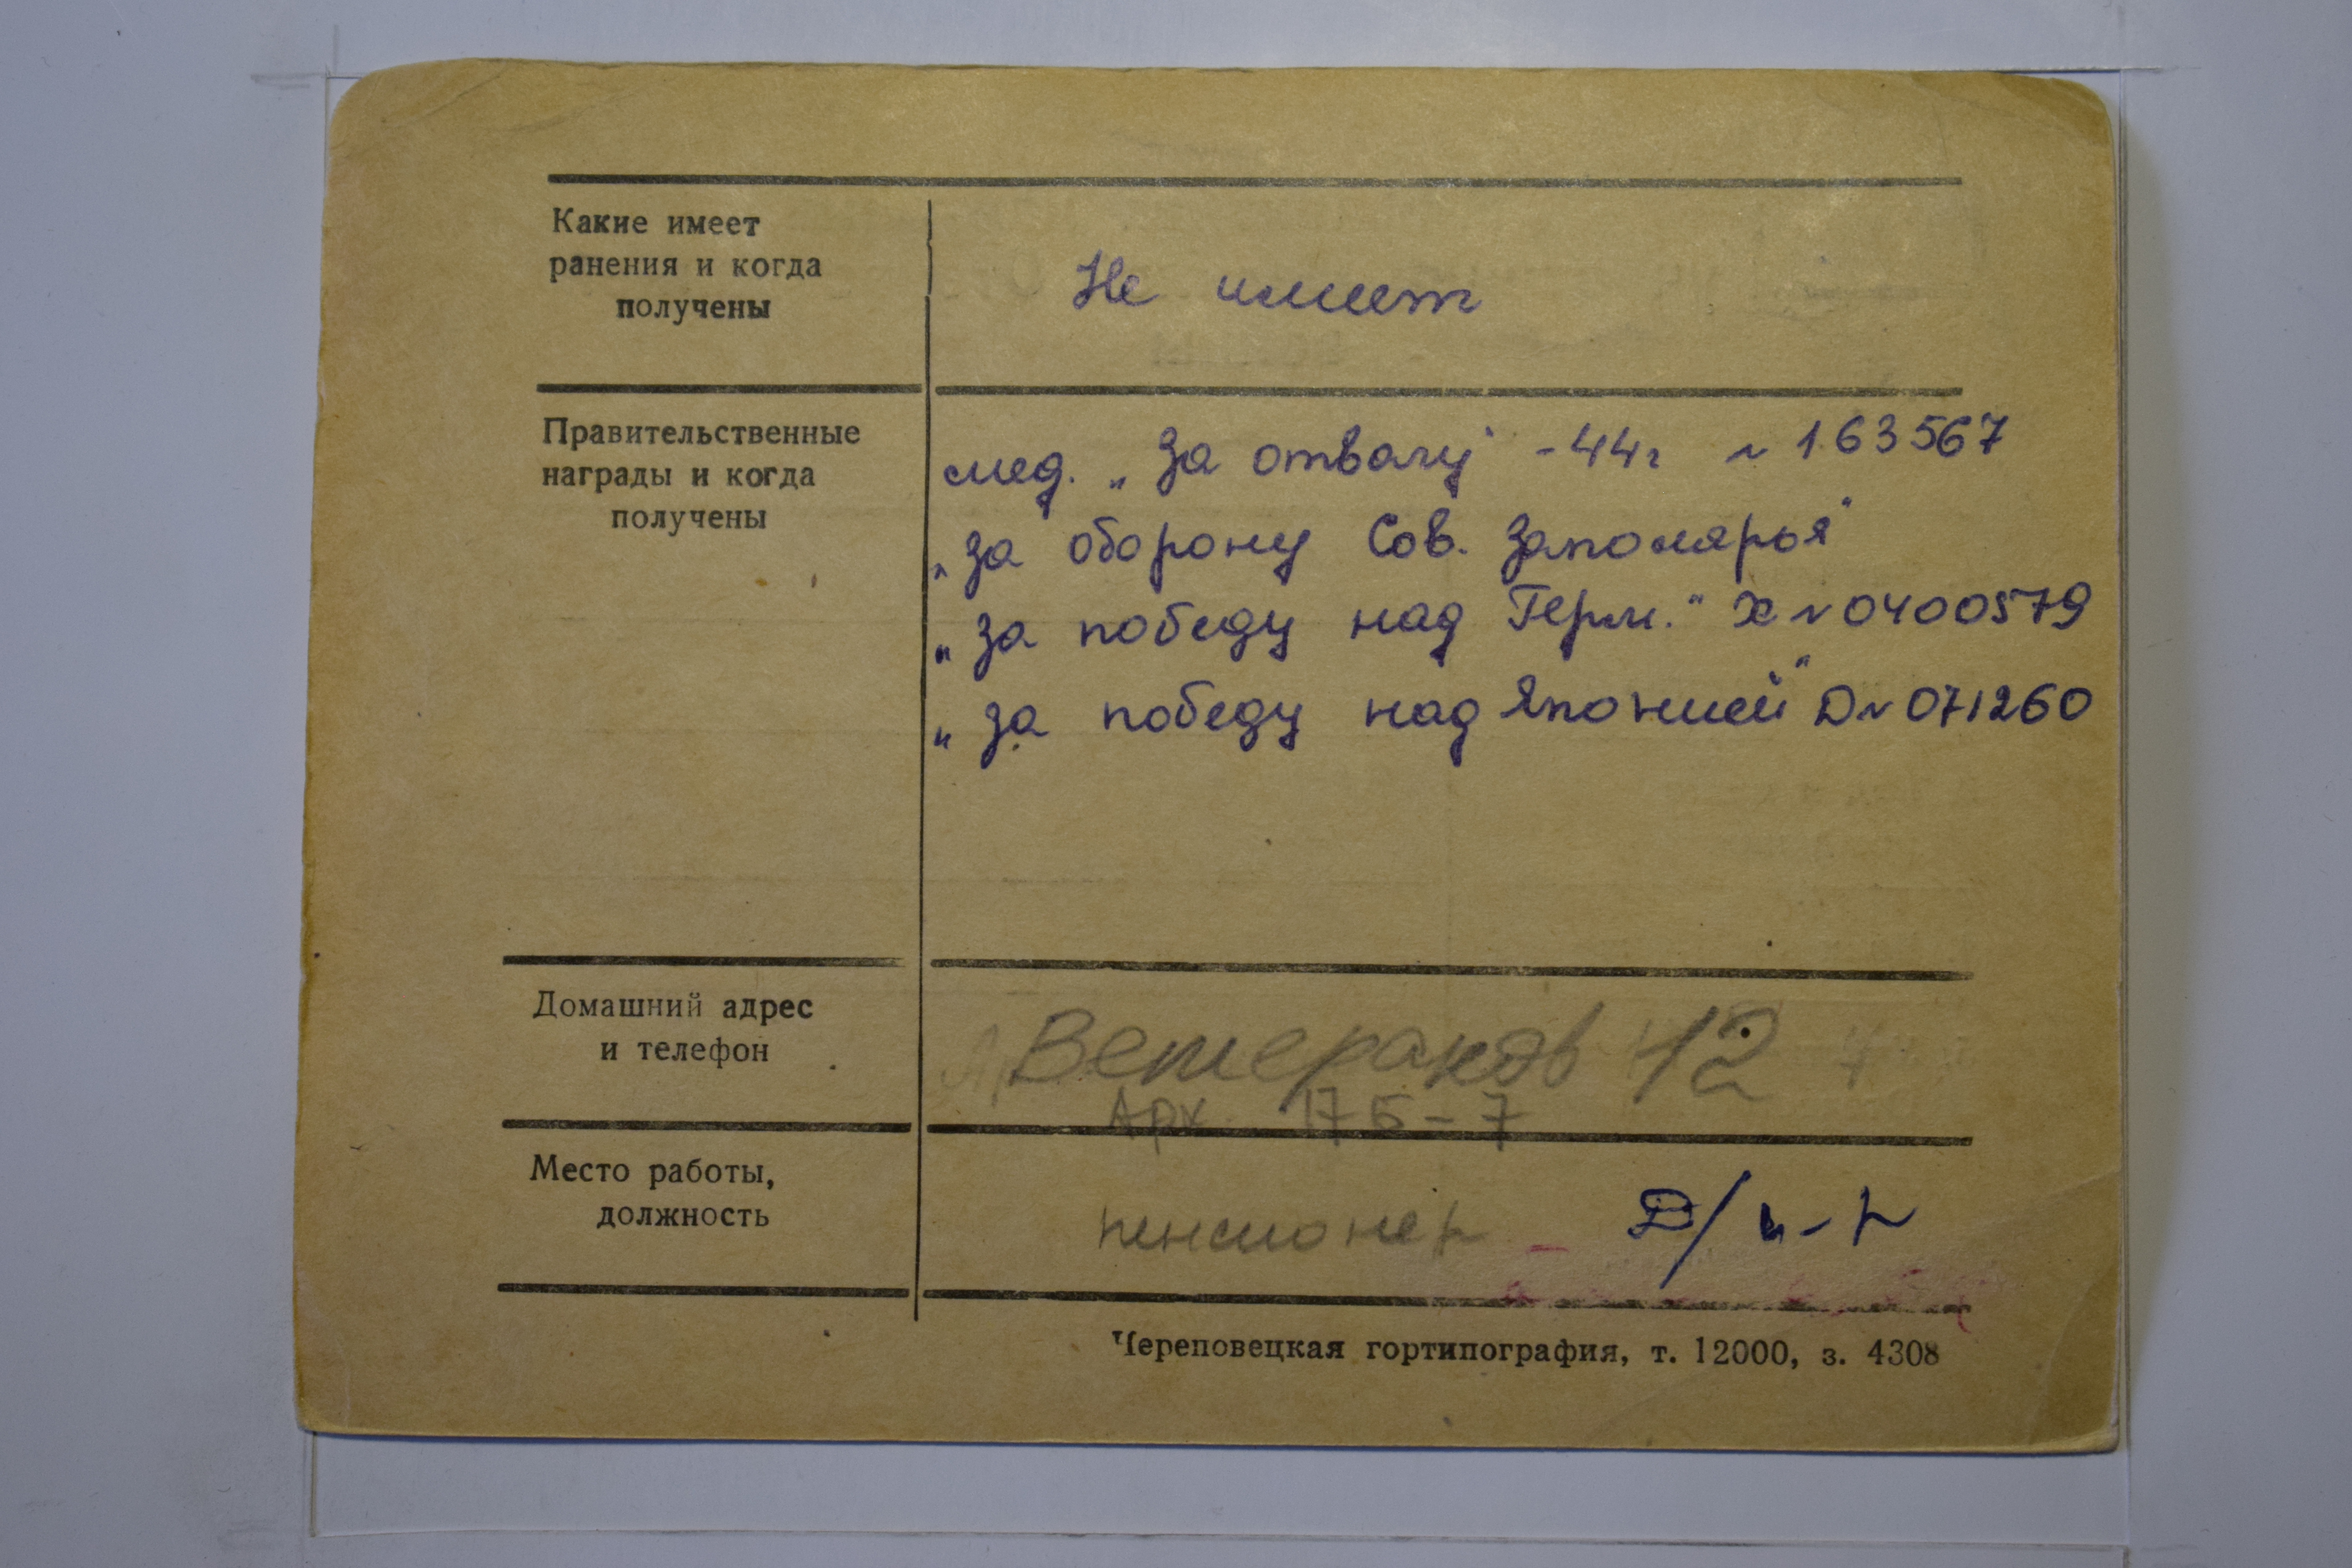 Какие имеет
ранения и когда
получены
Не имеет
Правительственные
награды и когда
получены
мед. „За отвагу" -44г № 163567
„За оборону Сов. Заполярья"
„За победу над Герм." Х № 0400579
„За победу над Японией" D № 071260
Домашний адрес
и телефон
Ветеранов 12
Арх. 17Б-7
Место работы,
должность
пенсионер
Череповецкая гортипография, т. 12000, з. 4308